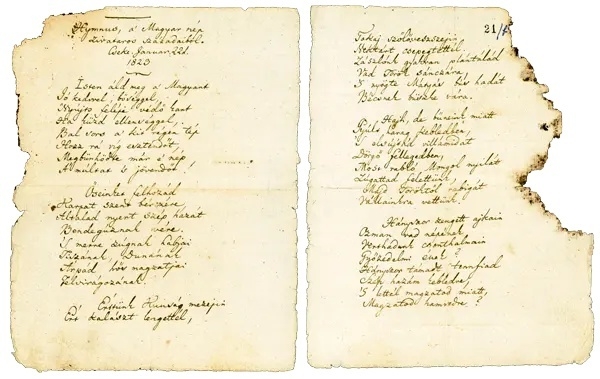 Hymnus, a Magyar nép
zivataros századaiból.
Cseke. Januar. 22d.
1823
Isten áldd meg a Magyart
Jó kedvvel, bőséggel,
Nyújts feléje védő kart
Ha küzd ellenséggel,
Bal sors a kit régen tép
Hozz rá víg esztendőt,
Megbűnhődte már e nép
A multat 's jövendőt!
Őseinket felhozád
Kárpát szent bérczére,
Általad nyert szép hazát
Bendegúznak vére.
'S merre zúgnak habjai
Tiszának, Dunának
Árpád hős magzatjai
Felvirágozának.
Értünk Kunság mezején
Ért kalászt lengettél,
21
Tokaj szőlővesszein
Nektárt csepegtettél.
Zászlónk gyakran plántálád
Vad Török sánczára,
'S nyögte Mátyás bús hadát
Bécsnek büszke vára.
Hajh, de bűneink miatt
Gyúlt harag kebledben,
'S elsújtád villámidat
Dörgő fellegedben,
Most rabló Mongol nyilát
Zúgattad felettünk,
Majd Töröktől rabigát
Vállainkra vettünk.
Hányszor zengett ajkain
Ozmán vad népének
Vert hadunk csonthalmain
Győzedelmi ének?
Hányszor támadt tennfiad
Szép hazám kebledre,
'S lettél magzatod miatt,
Magzatod hamvedre?